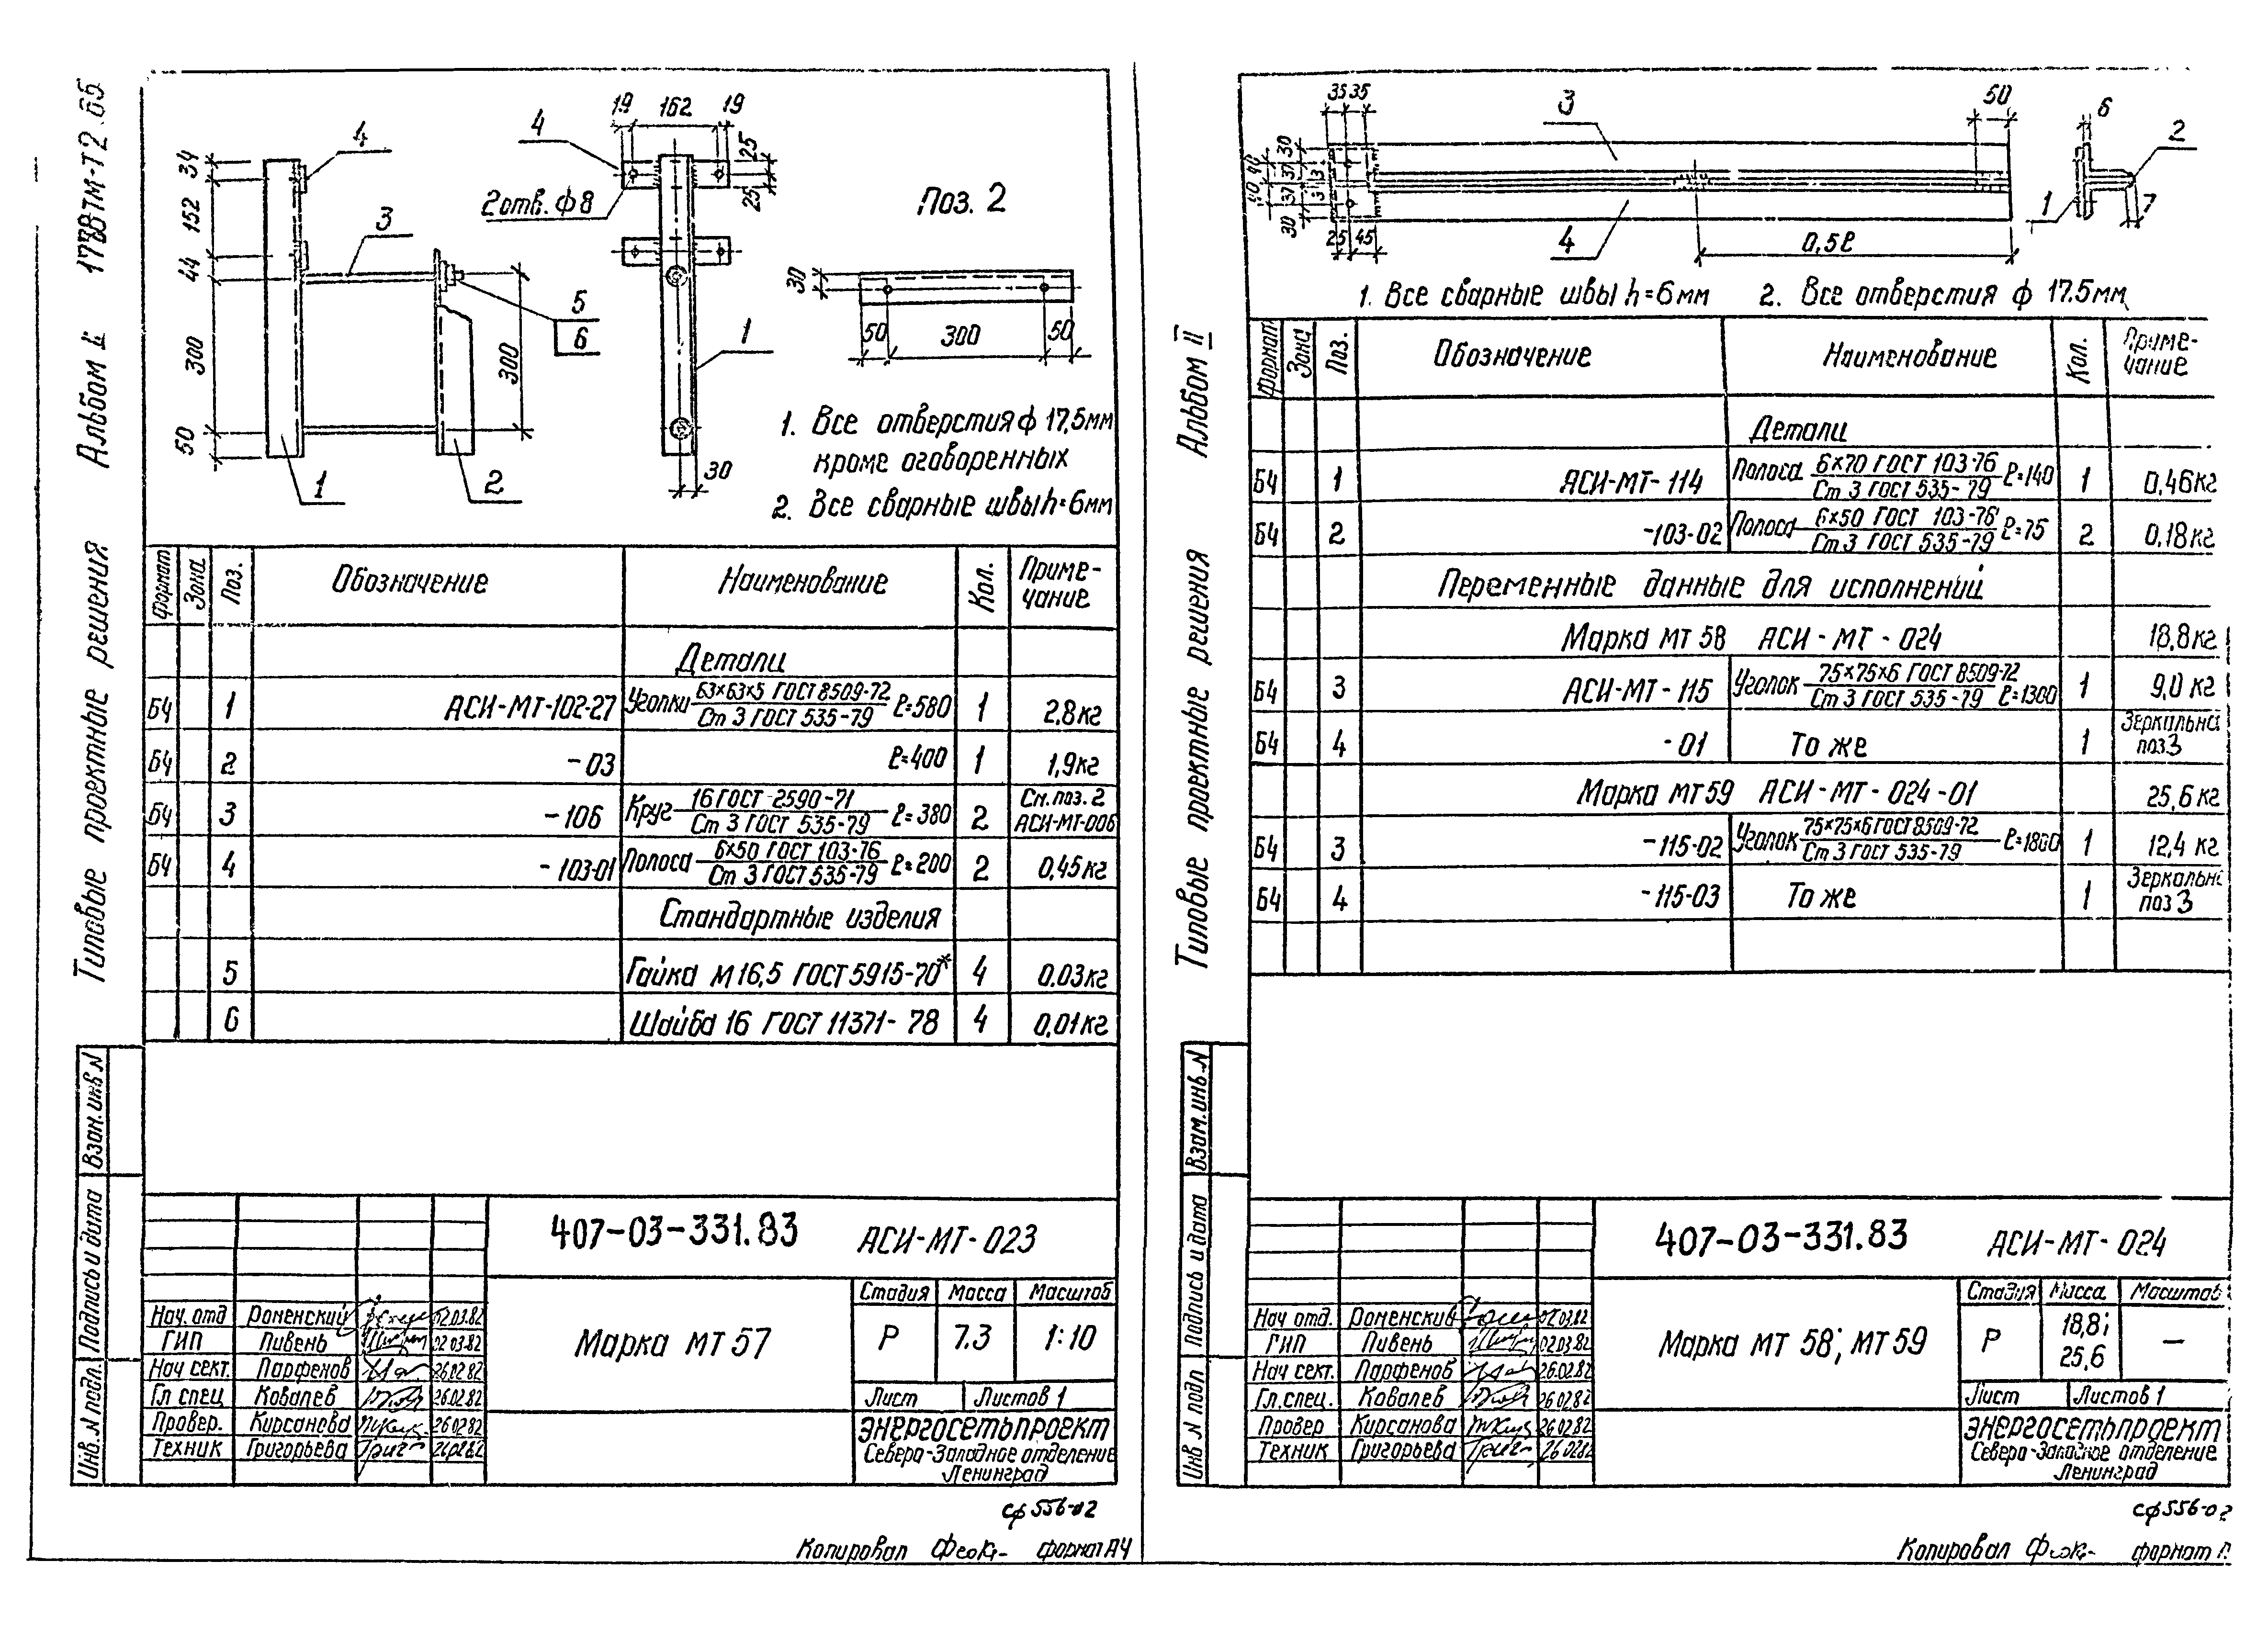 Типовые проектные решения Альбом II 1778ТМ-Т2
34
152
44
300
50
4
3
5
6
300
1
2
19 162 19
4
25
25
2 отв. ф 8
1
30
Поз. 2
30
50 300 50
1. Все отверстия ф 17,5мм
кроме оговоренных
2. Все сварные швы h=6мм
Формат Зона Поз. Обозначение Наименование Кол. Приме-
чание
Детали
Б4 1 АСИ-МТ-102-27 Уголки 63×63×5 ГОСТ 8509-72 / Ст 3 ГОСТ 535-79 ℓ=580 1 2,8кг
Б4 2 -03 ℓ=400 1 1,9кг
Б4 3 -106 Круг 16 ГОСТ 2590-71 / Ст 3 ГОСТ 535-79 ℓ=380 2 См. поз. 2
АСИ-МТ-006
Б4 4 -103-01 Полоса 6×50 ГОСТ 103-76 / Ст 3 ГОСТ 535-79 ℓ=200 2 0,45кг
Стандартные изделия
5 Гайка М16,5 ГОСТ 5915-70* 4 0,03кг
6 Шайба 16 ГОСТ 11371-78 4 0,01кг
Взам. инв. N
Подпись и дата
Инв. N подл.
407-03-331.83 АСИ-МТ-023
Марка МТ 57
Стадия Масса Масштаб
Р 7.3 1:10
Лист Листов 1
Нач. отд Роменский 02.03.82
ГИП Пивень 02.03.82
Нач сект. Парфенов 26.02.82
Гл. спец Ковалев 26.02.82
Провер. Кирсанова 26.02.82
Техник Григорьева 26.02.82
ЭНЕРГОСЕТЬПРОЕКТ
Северо-Западное отделение
Ленинград
сф 556-02
Копировал формат А4
Типовые проектные решения Альбом II
35 35
3
50
6
2
30
40 37 3
40 37 3
30
25 45
4
0,5ℓ
1
7
1. Все сварные швы h=6мм 2. Все отверстия ф 17.5мм
Формат Зона Поз. Обозначение Наименование Кол. Приме-
чание
Детали
Б4 1 АСИ-МТ-114 Полоса 6×70 ГОСТ 103-76 / Ст 3 ГОСТ 535-79 ℓ=140 1 0,46кг
Б4 2 -103-02 Полоса 6×50 ГОСТ 103-76 / Ст 3 ГОСТ 535-79 ℓ=75 2 0,18кг
Переменные данные для исполнений
Марка МТ 58 АСИ-МТ-024 18,8кг
Б4 3 АСИ-МТ-115 Уголок 75×75×6 ГОСТ 8509-72 / Ст 3 ГОСТ 535-79 ℓ=1300 1 9,0 кг
Б4 4 -01 То же 1 Зеркальна
поз 3
Марка МТ59 АСИ-МТ-024-01 25,6 кг
Б4 3 -115-02 Уголок 75×75×6 ГОСТ 8509-72 / Ст 3 ГОСТ 535-79 ℓ=1800 1 12,4 кг
Б4 4 -115-03 То же 1 Зеркальн
поз 3
Взам. инв. N
Подпись и дата
Инв N подл
407-03-331.83 АСИ-МТ-024
Марка МТ 58; МТ 59
Стадия Масса Масштаб
Р 18,8; 25,6 —
Лист Листов 1
Нач отд. Роменский 02.03.82
ГИП Пивень 02.03.82
Нач сект. Парфенов 26.02.82
Гл. спец. Ковалев 26.02.82
Провер Кирсанова 26.02.82
Техник Григорьева 26.02.82
ЭНЕРГОСЕТЬПРОЕКТ
Северо-Западное отделение
Ленинград
сф 556-02
Копировал формат